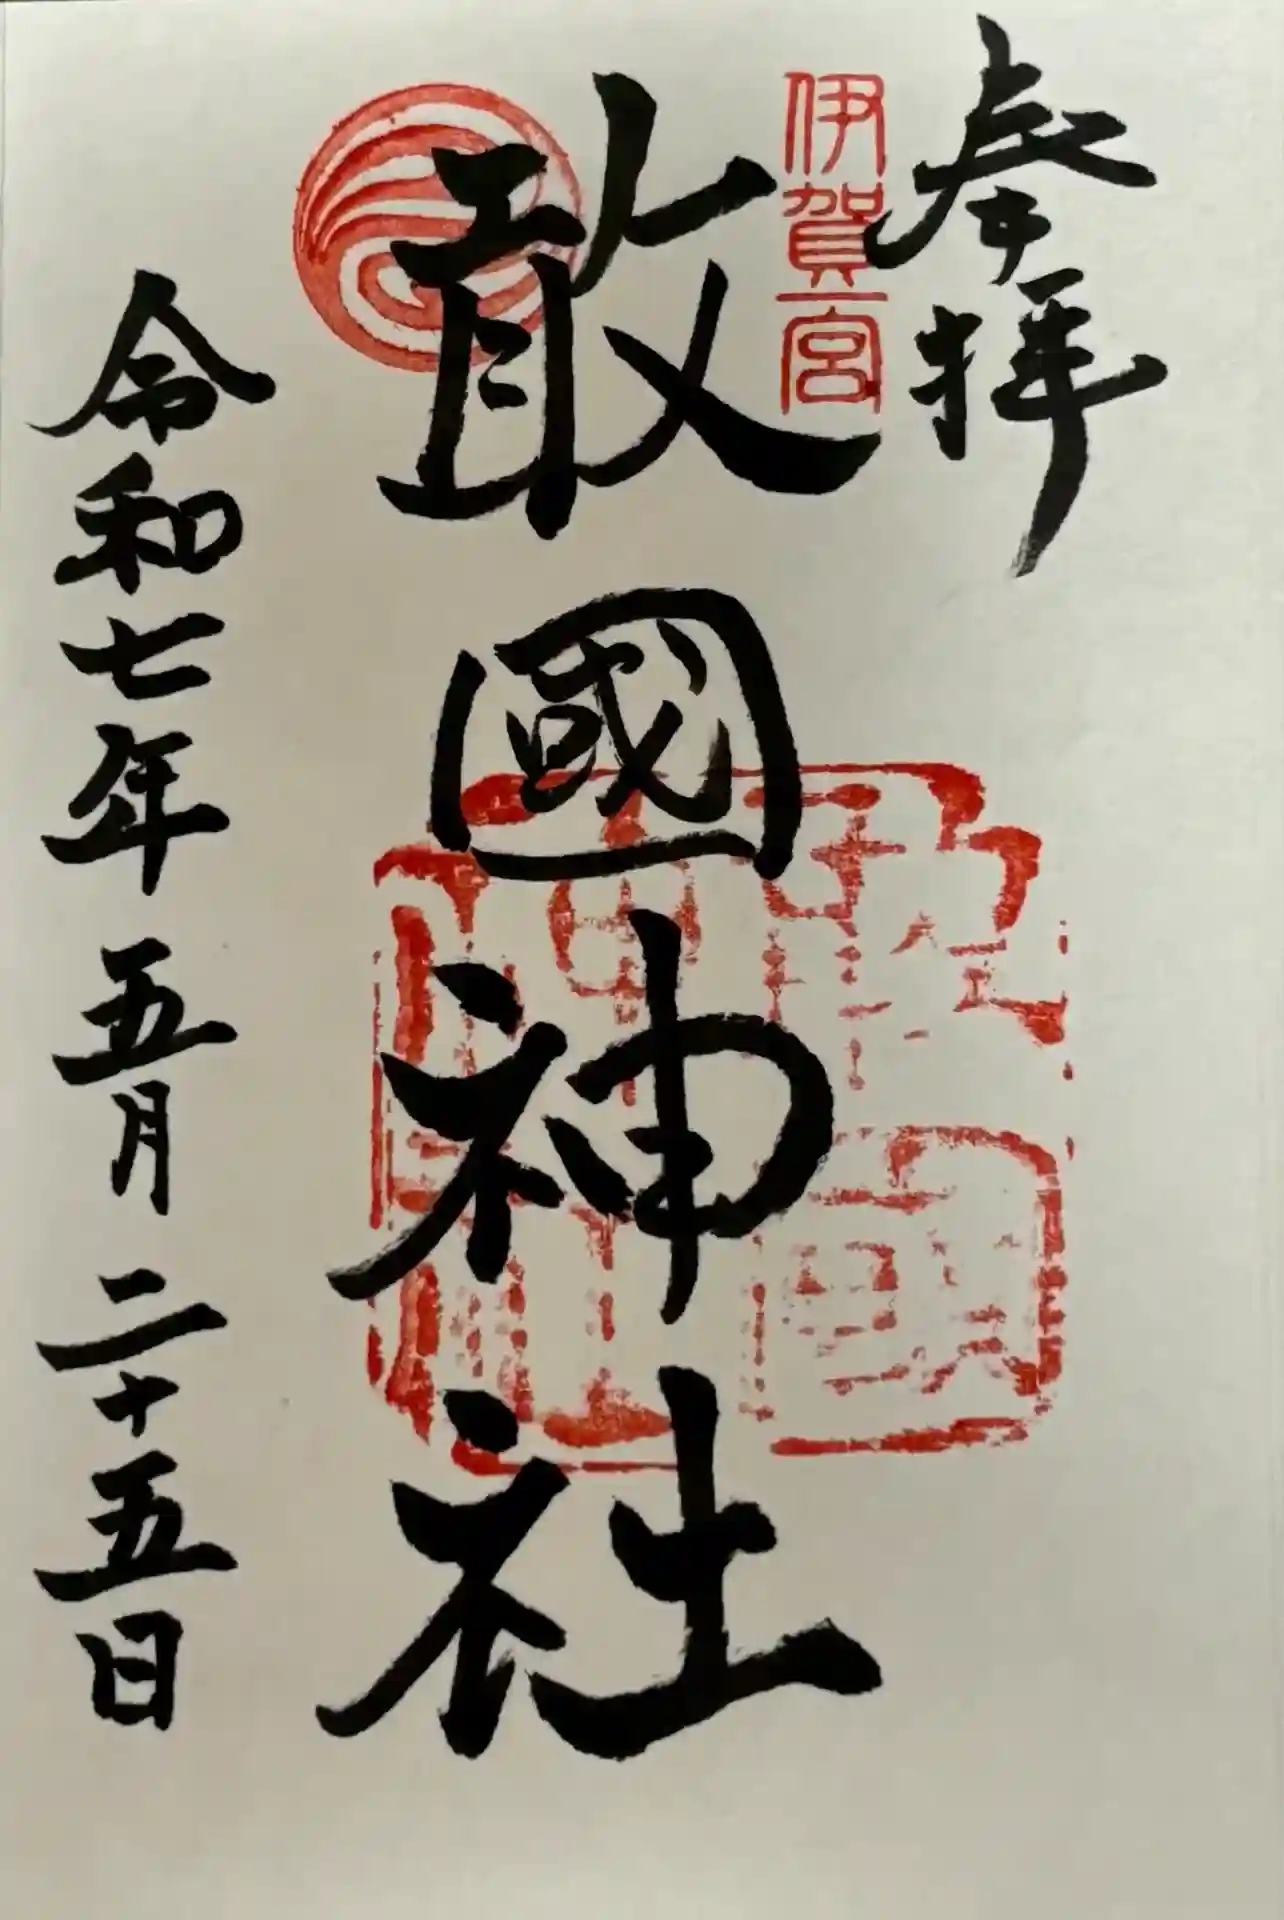 参拝
伊賀一宮
敢國神社
令和七年五月二十五日